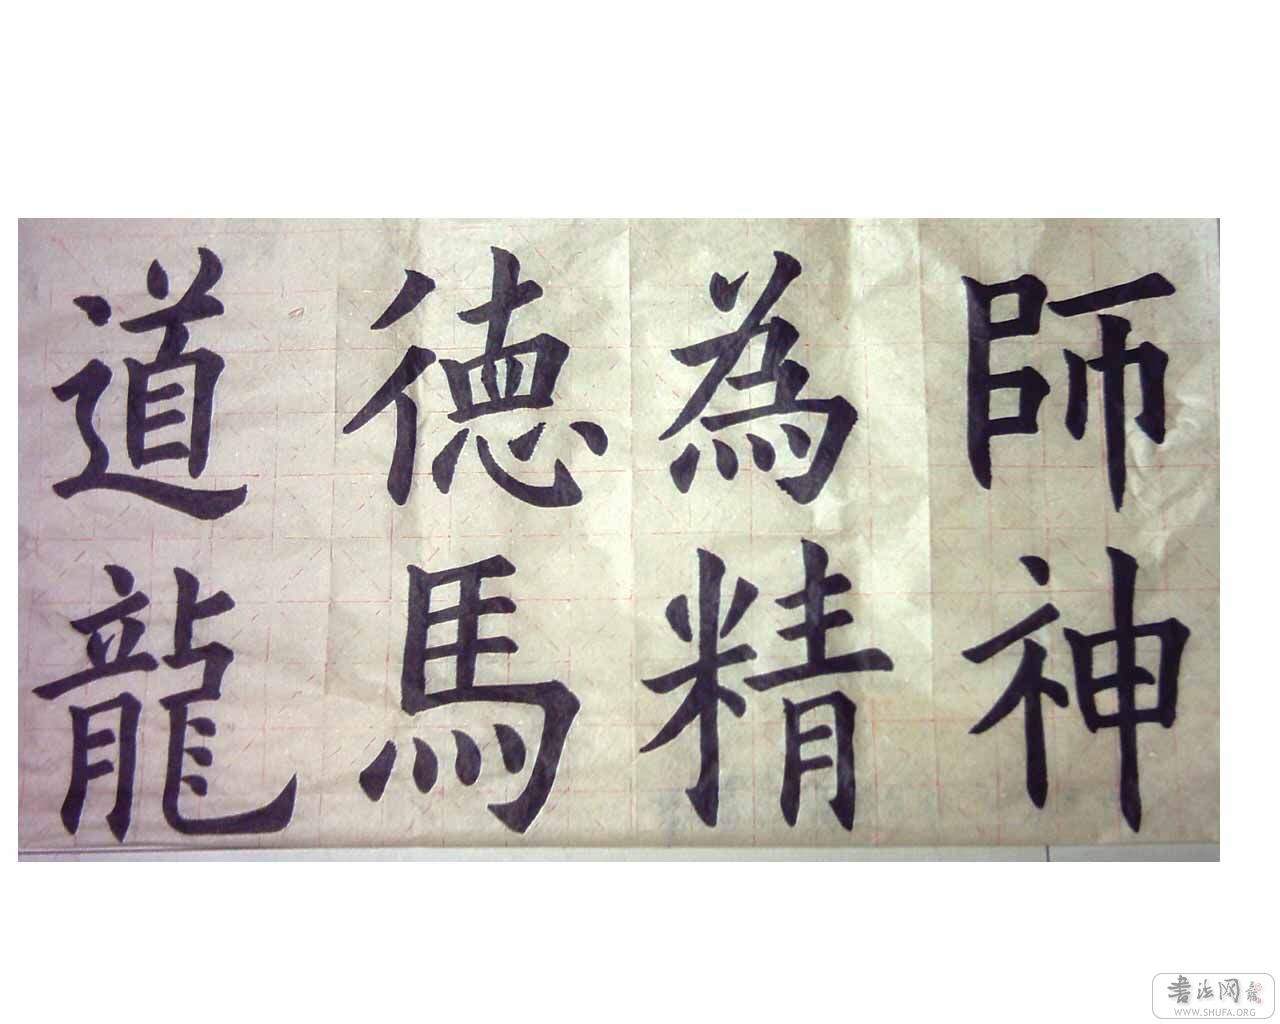 道德為師
龍馬精神
書法网
WWW.SHUFA.ORG